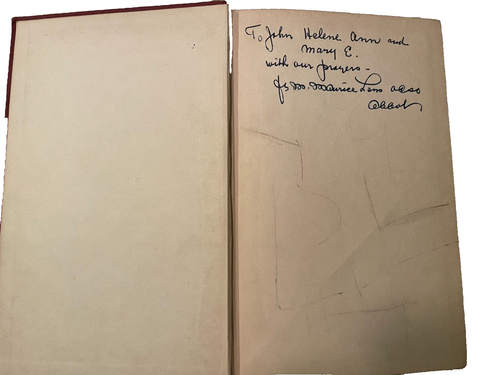 To John Helene Ann and
Mary E.
with our prayers-
fr M. Maurice Lans ocso
Abbot